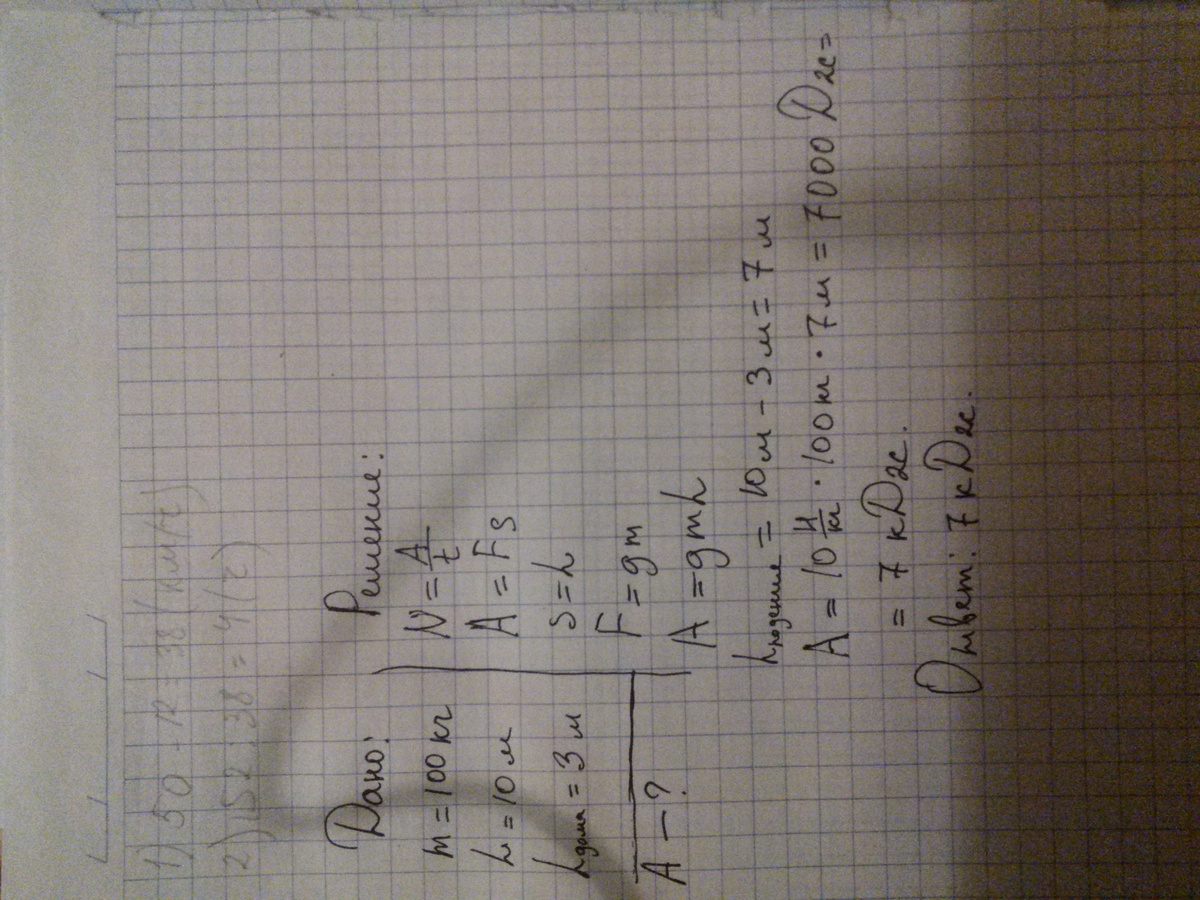 1) 50 - 12 = 38 (км/ч)
2) 152 : 38 = 4 (ч)
Дано:
m = 100 кг
h = 10 м
h дома = 3 м
A — ?
Решение:
N = A/t
A = FS
S = h
F = gm
A = gmh
h падение = 10 м - 3 м = 7 м
A = 10 Н/кг · 100 кг · 7 м = 7000 Дж =
= 7 кДж.
Ответ: 7 кДж.